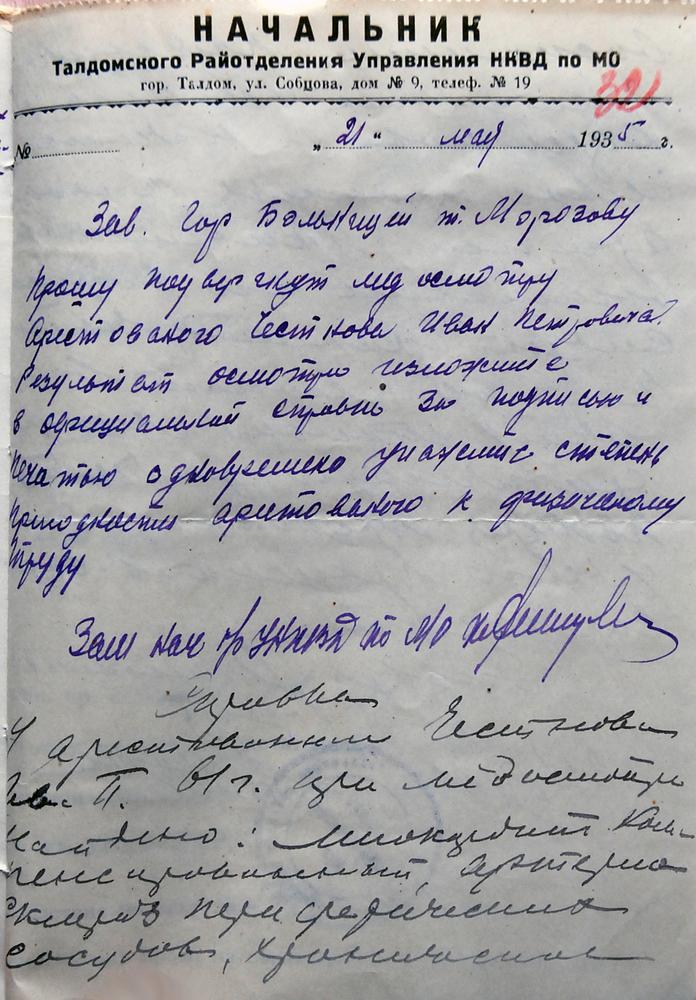 НАЧАЛЬНИК
Талдомского Райотделения Управления НКВД по МО
гор. Талдом, ул. Собцова, дом № 9, телеф. № 19
32
№ „ 21 “ мая 1935 г.
Зав. Гор Больницей т. Морозову
Прошу подвергнут мед осмотру
Арестованого Честнова Иван Петровича.
Результат осмотра изложите
в официальной справке за подписью и
печатью одновремено укажите степень
пригодности арестованого к физическому
труду
Зам нач ро УНКВД по МО
Справка
У арестованного Честнова
Ив. П. 61 г. при медосмотре
найдено: миокардит ком-
пенсированный, артерио
склероз периферических
сосудов, хронические